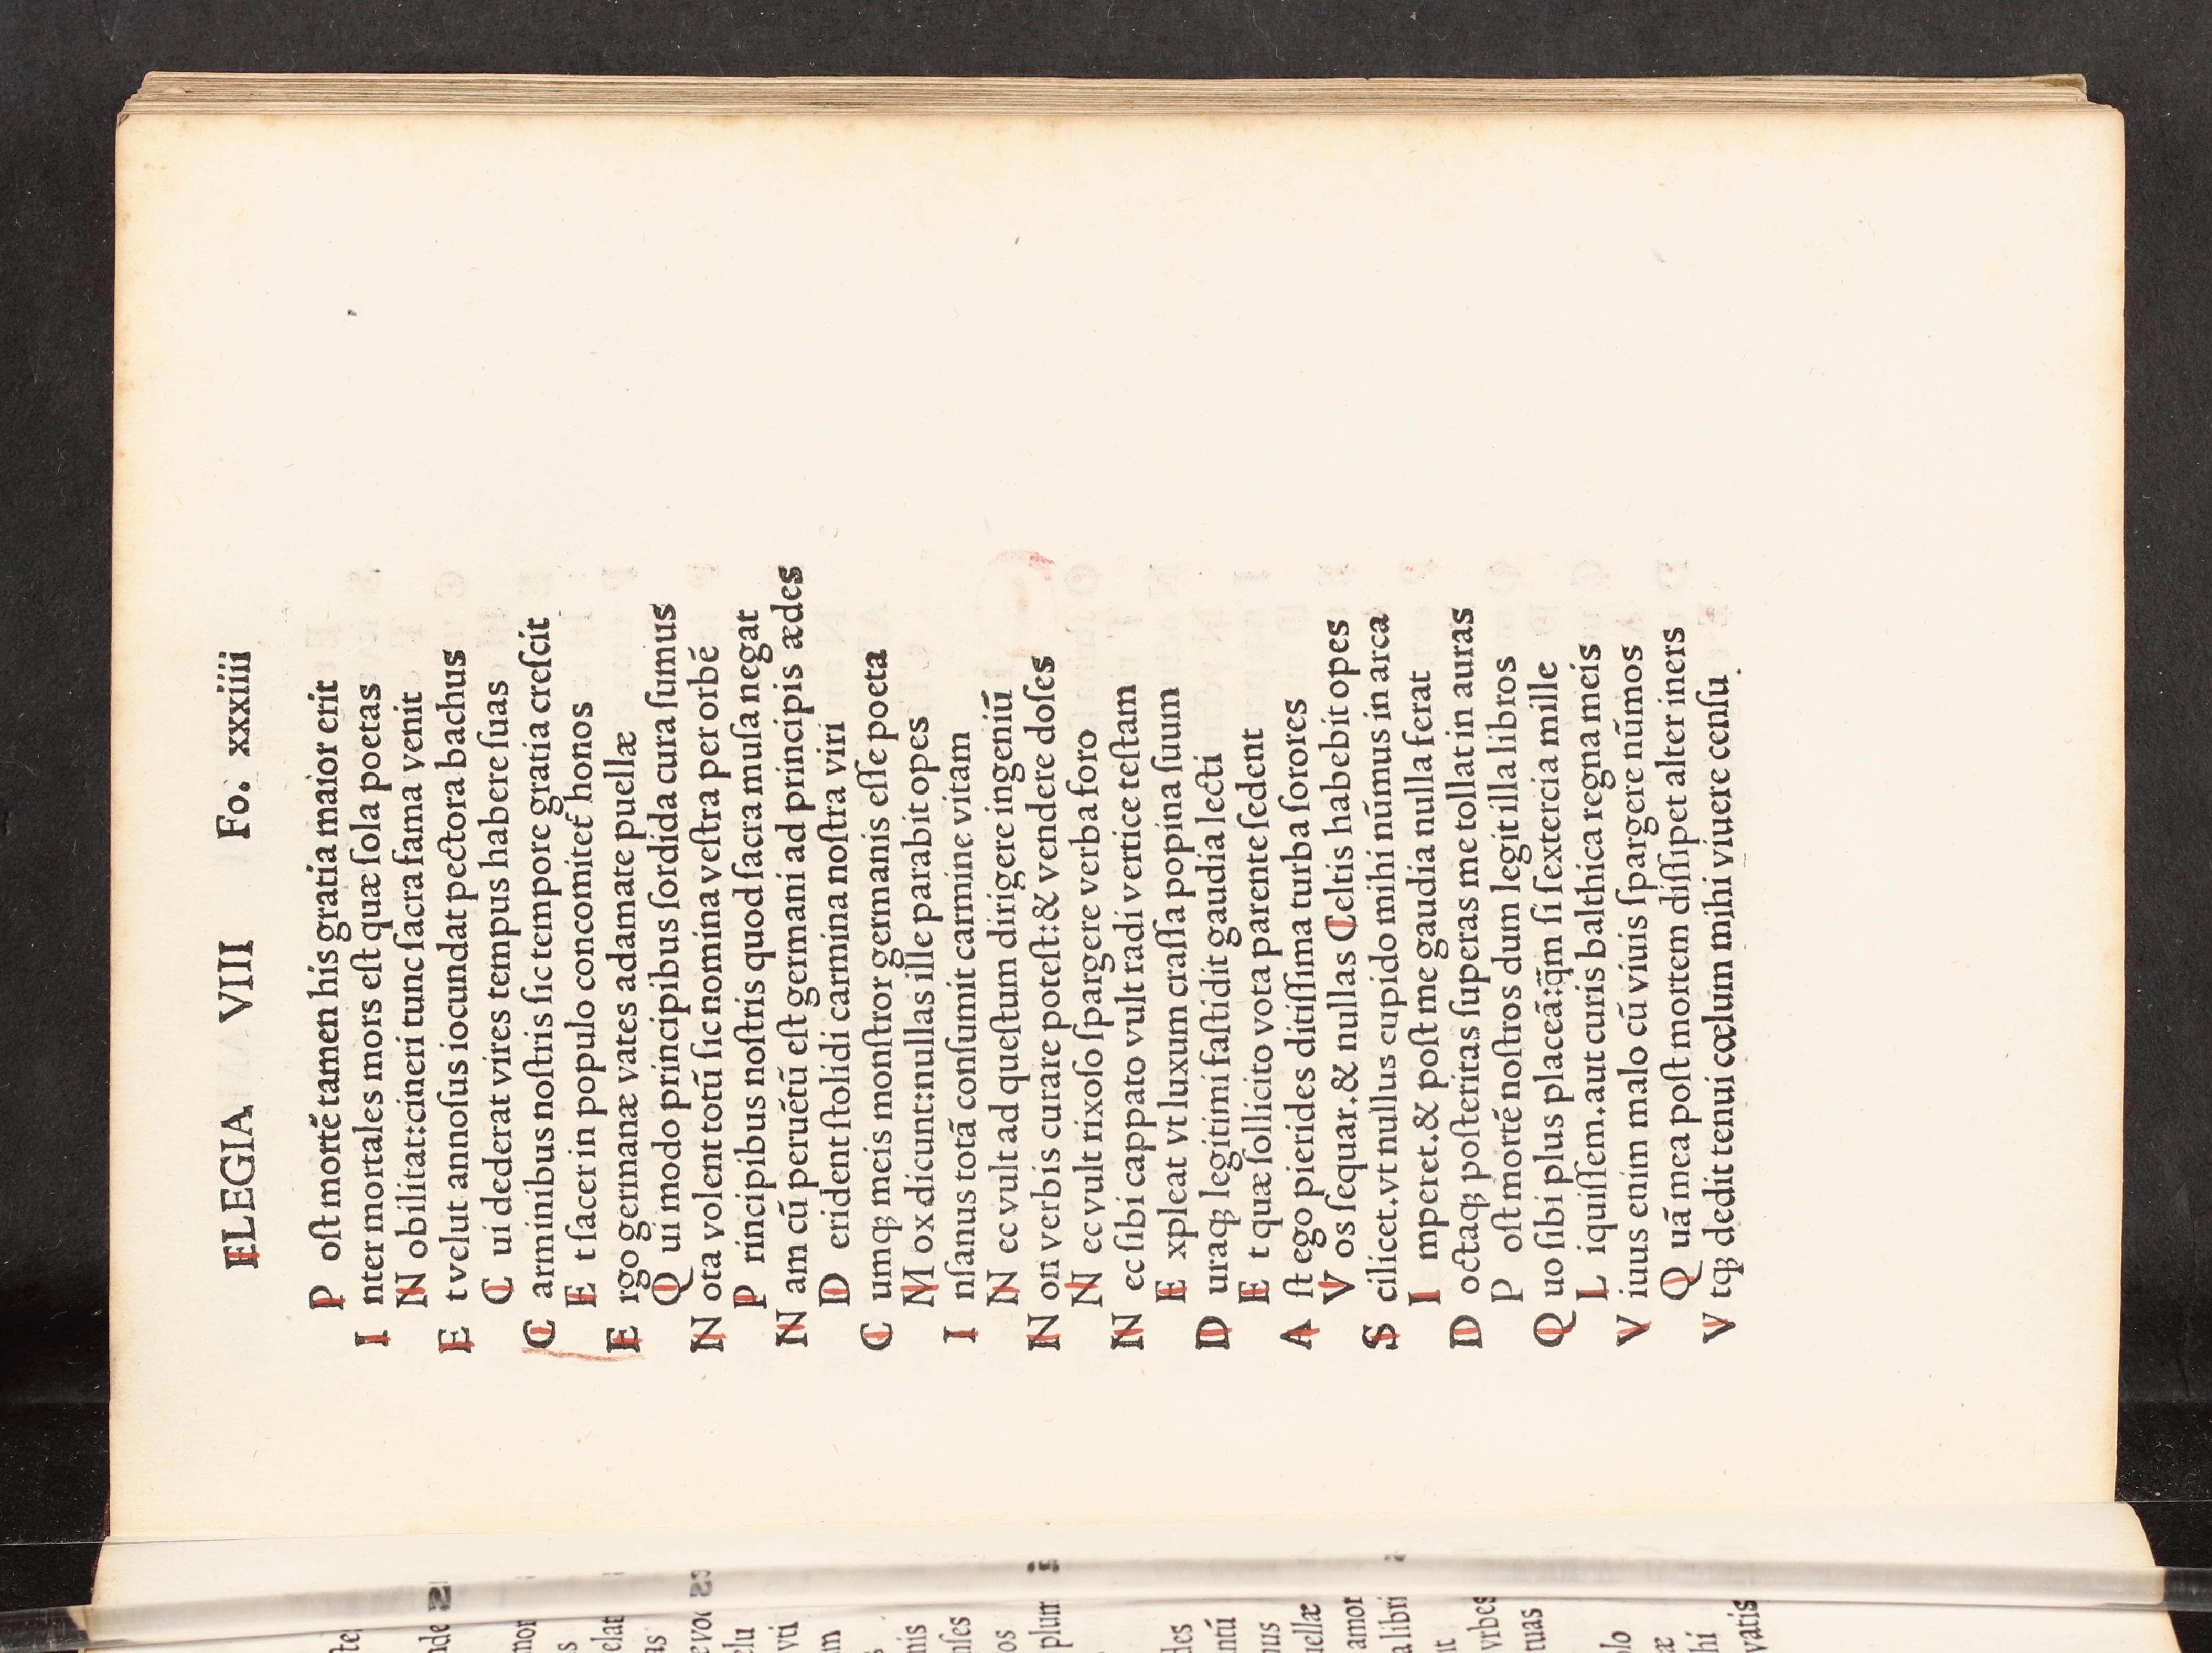 ELEGIA VIII Fo. xxxiiii
P oſt mortē tamen his gratia maior erit
I nter mortales mors eſt quæ ſola poetas
N obilitat:cineri tunc ſacra fama venit
E t velut annoſus iocundat pectora bachus
C ui dederat vires tempus habere ſuas
C arminibus noſtris ſic tempore gratia creſcit
E t ſacer in populo concomitet honos
E rgo germanæ vates adamate puellæ
Q ui modo principibus ſordida cura ſumus
N ota volent totū ſic nomina veſtra per orbē
P rincipibus noſtris quod ſacra muſa negat
N am cū peruētū eſt germani ad principis ædes
D erident ſtolidi carmina noſtra viri
C umqꝫ meis monſtror germanis eſſe poeta
M ox dicunt:nullas ille parabit opes
I nſanus totā conſumit carmine vitam
N ec vult ad queſtum dirigere ingeniū
N on verbis curare poteſt:& vendere doſes
N ec vult rixoſo ſpargere verba foro
N ec ſibi cappato vult radi vertice teſtam
E xpleat vt luxum craſſa popina ſuum
D uraqꝫ legitimi faſtidit gaudia lecti
E t quæ ſollicito vota parente ſedent
A ſt ego pierides ditiſſima turba ſorores
V os ſequar.& nullas Celtis habebit opes
S cilicet.vt nullus cupido mihi nūmus in arca
I mperet.& poſt me gaudia nulla ferat
D octaqꝫ poſteritas ſuperas me tollat in auras
P oſt mortē noſtros dum legit illa libros
Q uo ſibi plus placeā:q̄m ſi ſextercia mille
L iquiſſem.aut curis balthica regna meis
V iuus enim malo cū viuis ſpargere nūmos
Q uā mea poſt mortem diſſipet alter iners
V tqꝫ dedit tenui cœlum mihi viuere cenſu.